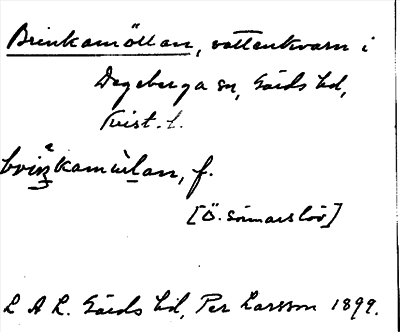 Brinkamöllan, vattenkvarn i
Degeberga sn, Gärds hd,
Krist. l.
briŋkamùlan, f.
[Ö. Sönnarslöv]
L A L. Gärds hd, Per Larsson 1899.